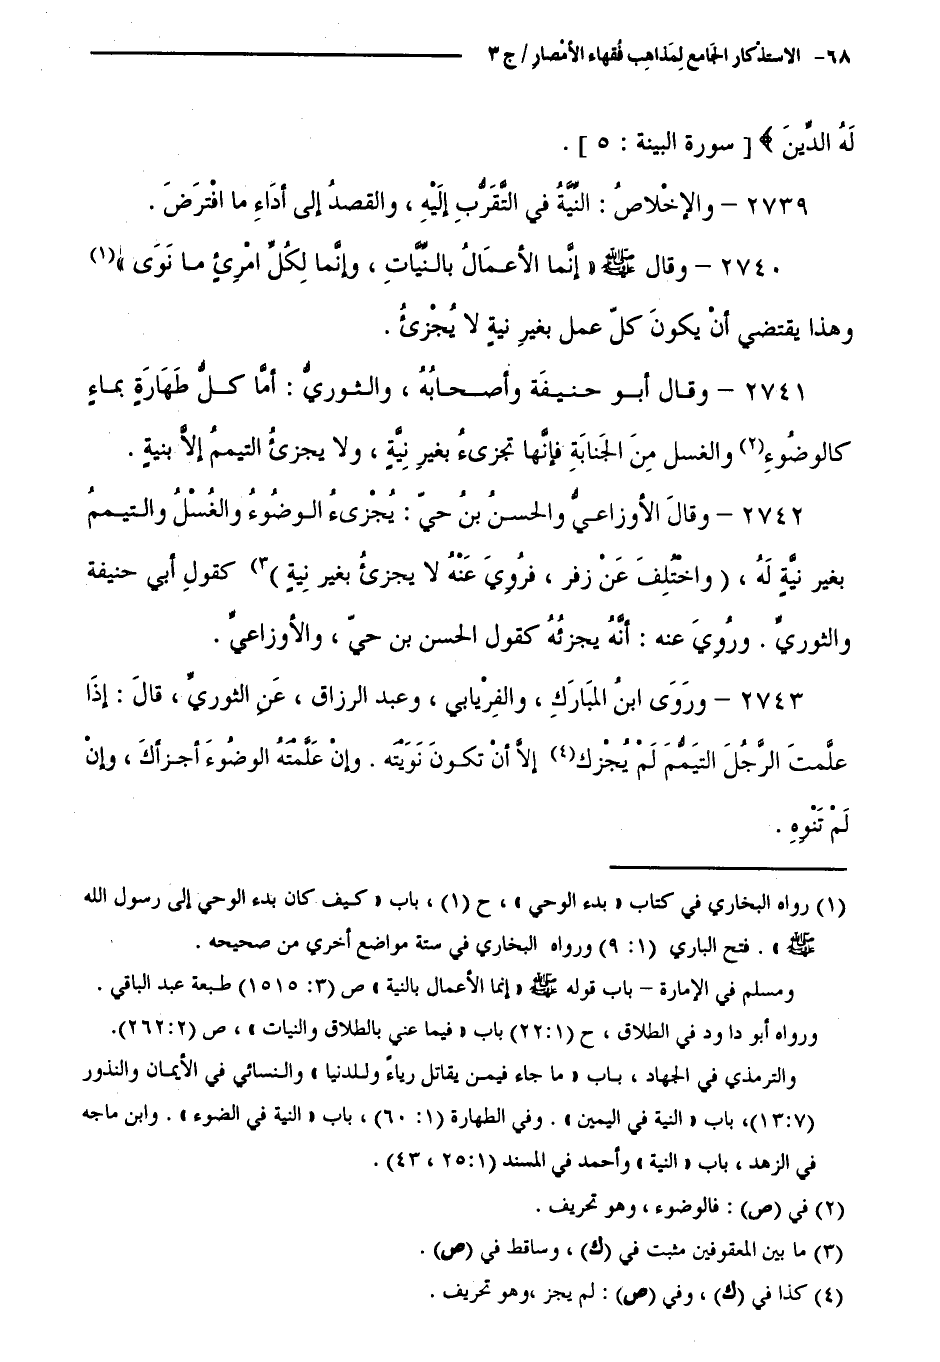 ٦٨- الاستذكار الجَامع لِمَذاهِب فُقهاء الأمْصارِ / ج ٣
لَهُ الدِّينَ ﴾ [ سورة البينة : ٥ ] .
٢٧٣٩ – والإخْلاصُ : النِّيَّةُ في التَّقَرُّبِ إِلَيْهِ ، والقصدُ إلى أدَاءِ ما افْتَرَضَ .
٢٧٤٠ – وقال ﷺ « إنَّما الأعمَالُ بالنِّيَّاتِ ، وإنَّما لِكُلِّ امْرِئٍ ما نَوَى »(١)
وهذا يقتضي أنْ يكونَ كلّ عمل بغيرِ نيةٍ لا يُجْزئُ .
٢٧٤١ – وقال أبو حنيفَة وأصحابُهُ ، والثوريُّ : أمَّا كلُّ طَهَارَةٍ بماءٍ
كالوضُوءِ(٢) والغسل مِنَ الجَنابَةِ فإنَّها تجزىءُ بغيرِ نِيَّةٍ ، ولا يجزئُ التيممُ إلاَّ بنيةٍ .
٢٧٤٢ – وقالَ الأوزاعيُّ والحسنُ بنُ حيّ : يُجْزىءُ الوضُوءُ والغُسْلُ والتيممُ
بغير نيَّةٍ لَهُ ، ( واخْتُلِفَ عَنْ زفر ، فرُوِيَ عَنْهُ لا يجزئُ بغير نِيةٍ )٣) كقولِ أبي حنيفة
والثوريِّ . ورُوِيَ عنه : أنَّهُ يجزئُهُ كقول الحسن بن حيّ ، والأوزاعيِّ .
٢٧٤٣ – ورَوَى ابنُ المبَارَكِ ، والفِرْيابي ، وعبد الرزاق ، عَنِ الثوريِّ ، قالَ : إذَا
علَّمتَ الرَّجُلَ التيَمُّمَ لَمْ يُجْزِك(٤) إلاَّ أنْ تكونَ نَوَيْتَه . وإنْ عَلَّمْتَهُ الوضُوءَ أجزأكَ ، وإنْ
لَمْ تَنْوِهِ .
(١) رواه البخاري في كتاب « بدء الوحي » ، ح (١) ، باب « كيف كان بدء الوحي إلى رسول الله
ﷺ » . فتح الباري (١: ٩) ورواه البخاري في ستة مواضع أخري من صحيحه .
ومسلم في الإمارة – باب قوله ﷺ « إنما الأعمال بالنية » ص (٣: ١٥١٥) طبعة عبد الباقي .
ورواه أبو داود في الطلاق ، ح (٢٢:١) باب « فيما عني بالطلاق والنيات » ، ص (٢٦٢:٢).
والترمذي في الجهاد ، باب « ما جاء فيمن يقاتل رياءً وللدنيا » والنسائي في الأيمان والنذور
(١٣:٧)، باب « النية في اليمين » . وفي الطهارة (١: ٦٠) ، باب « النية في الضوء » . وابن ماجه
في الزهد ، باب « النية » وأحمد في المسند (٢٥:١ ، ٤٣) .
(٢) في (ص) : فالوضوء ، وهو تحريف .
(٣) ما بين المعقوفين مثبت في (ك) ، وساقط في (ص) .
(٤) كذا في (ك) ، وفي (ص) : لم يجز ،وهو تحريف .